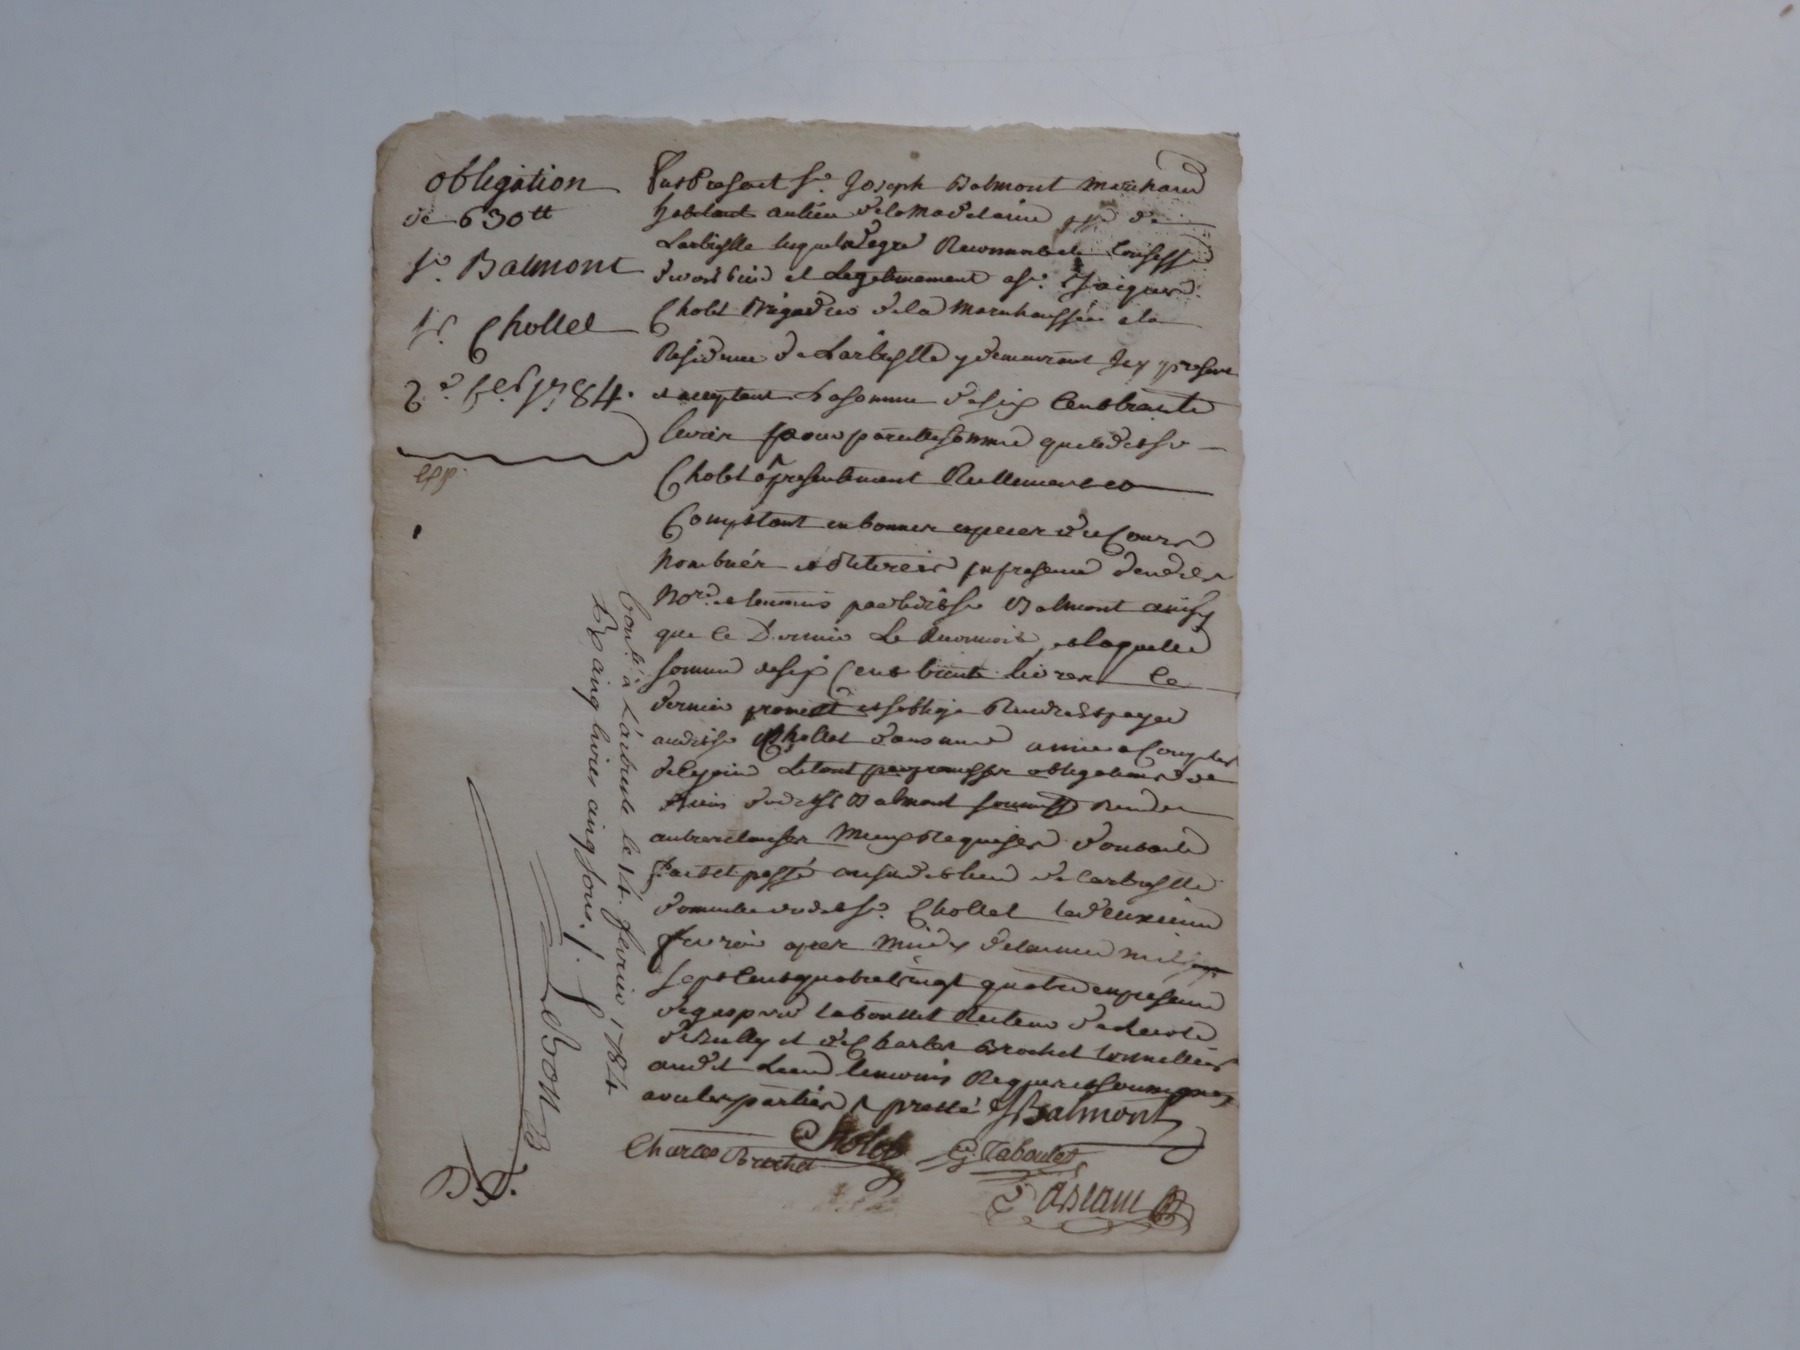 obligation
de 630tt
sr. Balmont
sr. Chollet
2e fer. 1784.
exp.
fut Present sr. Joseph Balmont Marchand
habitant au lieu de la Madelaine psse de
Larbresle lequel de gré Reconnoit et Confesse
devoir bien et Legitimement a sr. Jacques
Cholet Brigadier de la Marechaussée a la
Residence de Larbresle y demeurant Icy present
et acceptant La somme de six Cens trante
livres pour pareille somme que ledit sr
Cholet a presentement Reellement et
Comptant en bonnes especes de Cours
Nombrée et delivrée en presence des dits
Nore. et temoins par ledit sr Balmont ainsy
que ce Dernier Le Reconnoit, et laquelle
somme de six Cens trante livres Ce
dernier promet et s'oblige Rendre et payer
audit sr Chollet dans une année a Compter
de Ce jour Le tout par promesses obligations de
Biens dudit sr Balmont soumiss. Renon
autres clauses Mieux Requises dont acte
fait et passé au susdit lieu de Larbresle
domicile dudit sr. Chollet le deuxieme
fevrier apres Midy de l'année mil
sept Cens quatre vingt quatre en presence
de gaspard taboullet Recteur d'ecole
de Bully et de Charles Brochet tonnellier
audit Lieu temoins Requis et soussignés
avec les parties J Balmont
Cholet
Charles Brochet G. Taboulet
Conllé. à Larbresle le 14. fevrier 1784
Rx cinq livres cinq sous./.
LeBon